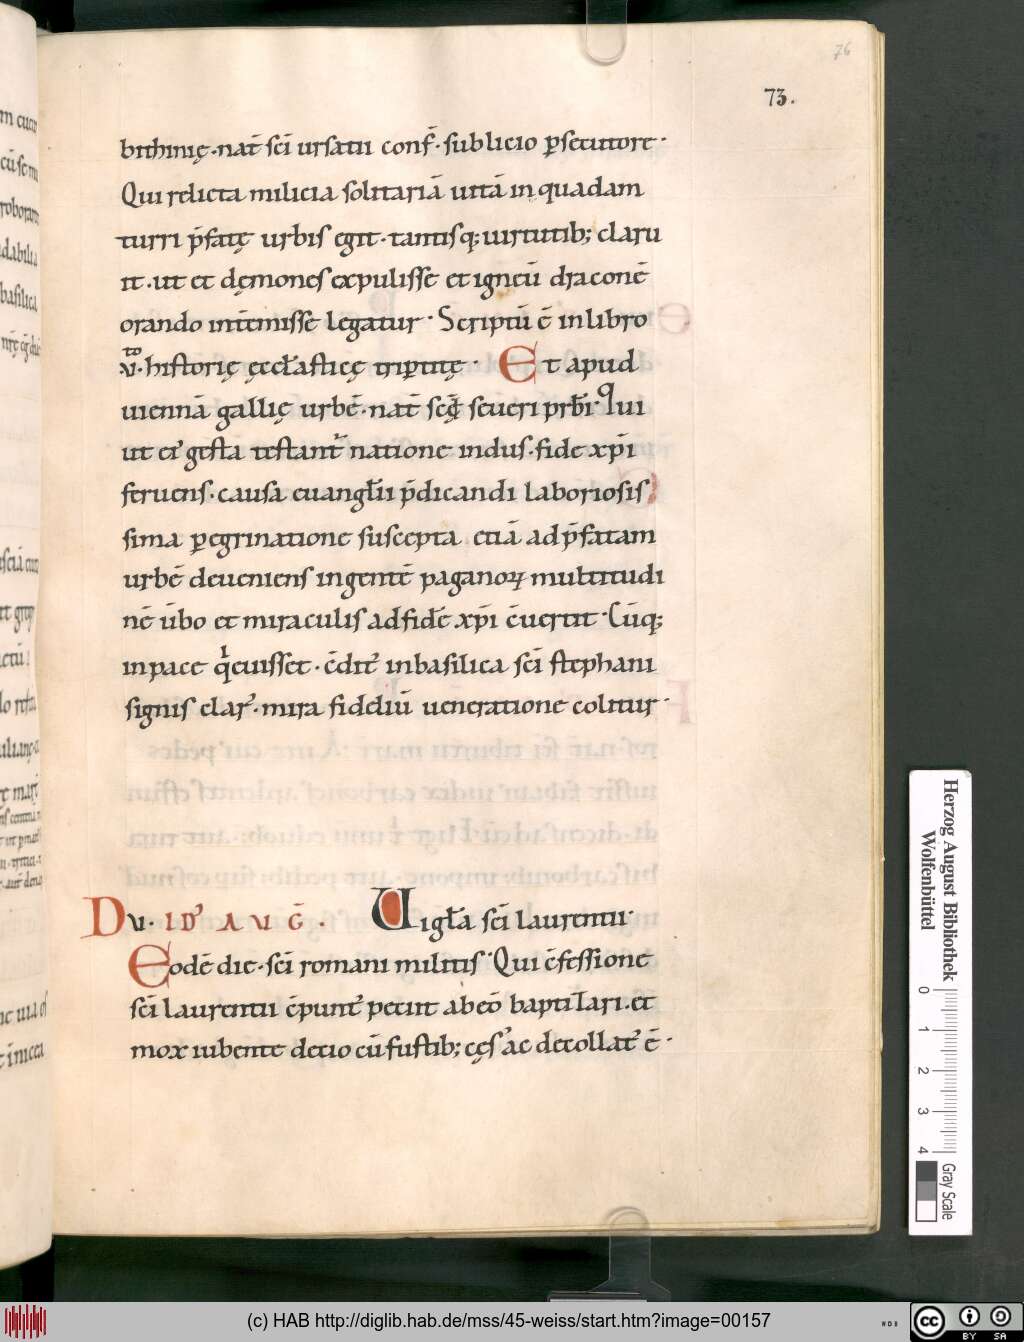 76
73.
bithinię. nat̄ sc̄i ursatii conf̄. sub licio ꝑsecutore.
Qui relicta milicia solitariā uitā in quadam
turri p̄fatę urbis egit. tantisq; uirtutib; claru
it. ut et dęmones expulisse et igneū draconē
orando int̄emisse legatur. Scriptū ē in libro
.vi.to historię ęccl̄asticę triꝑtitę. Et apud
uiennā gallię urbē. nat̄ sc̄i seueri prb̄i. Qui
ut eiꝰ gesta testant᷑ natione indus. fide xp̄i
feruens. causa euangl̄ii p̄dicandi laborioſiſ
sima ꝑegrinatione suscepta etiā ad p̄fatam
urbē deueniens ingentē paganoꝝ multitudi
nē ūbo et miraculis ad fidē xp̄i c̄uertit. Cūq;
in pace qͥeuisset. c̄dit᷑ in basilica sc̄i stephani
signis clarꝰ. mira fideliū ueneratione colitur.
Dv. IDꝰ AVḠ. Uigl̄a sc̄i laurentii.
Eodē die. sc̄i romani militis. Qui c̄fessione
sc̄i laurentii c̄punctꝰ petiit ab eo baptizari. et
mox iubente decio cū fustib; cęsꝰ ac decollatꝰ ē.
Herzog August Bibliothek
Wolfenbüttel
0 1 2 3 4
Gray Scale
(c) HAB http://diglib.hab.de/mss/45-weiss/start.htm?image=00157
WDB
cc BY SA